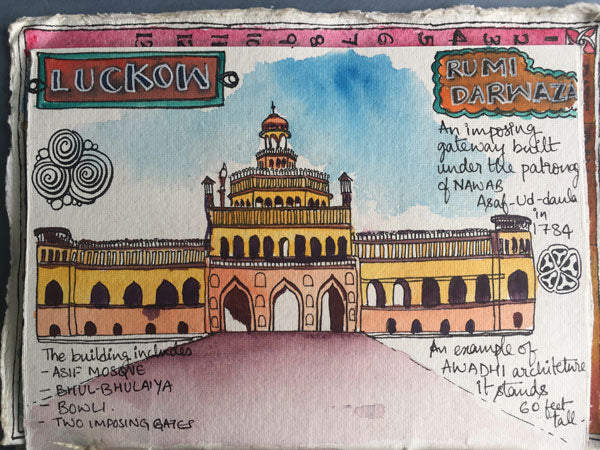 12 11 10 9 8 7 6 5 4 3 2 1
LUCKOW
RUMI
DARWAZA
An imposing
gateway built
under the patrong
of NAWAB
Asaf-Ud-daula
in
1784
The building includes
- ASIF MOSQUE
- BHUL-BHULAIYA
- BOWLI.
- TWO IMPOSING GATES
An example of
AWADHI architeture
It stands
60 feet
tall.